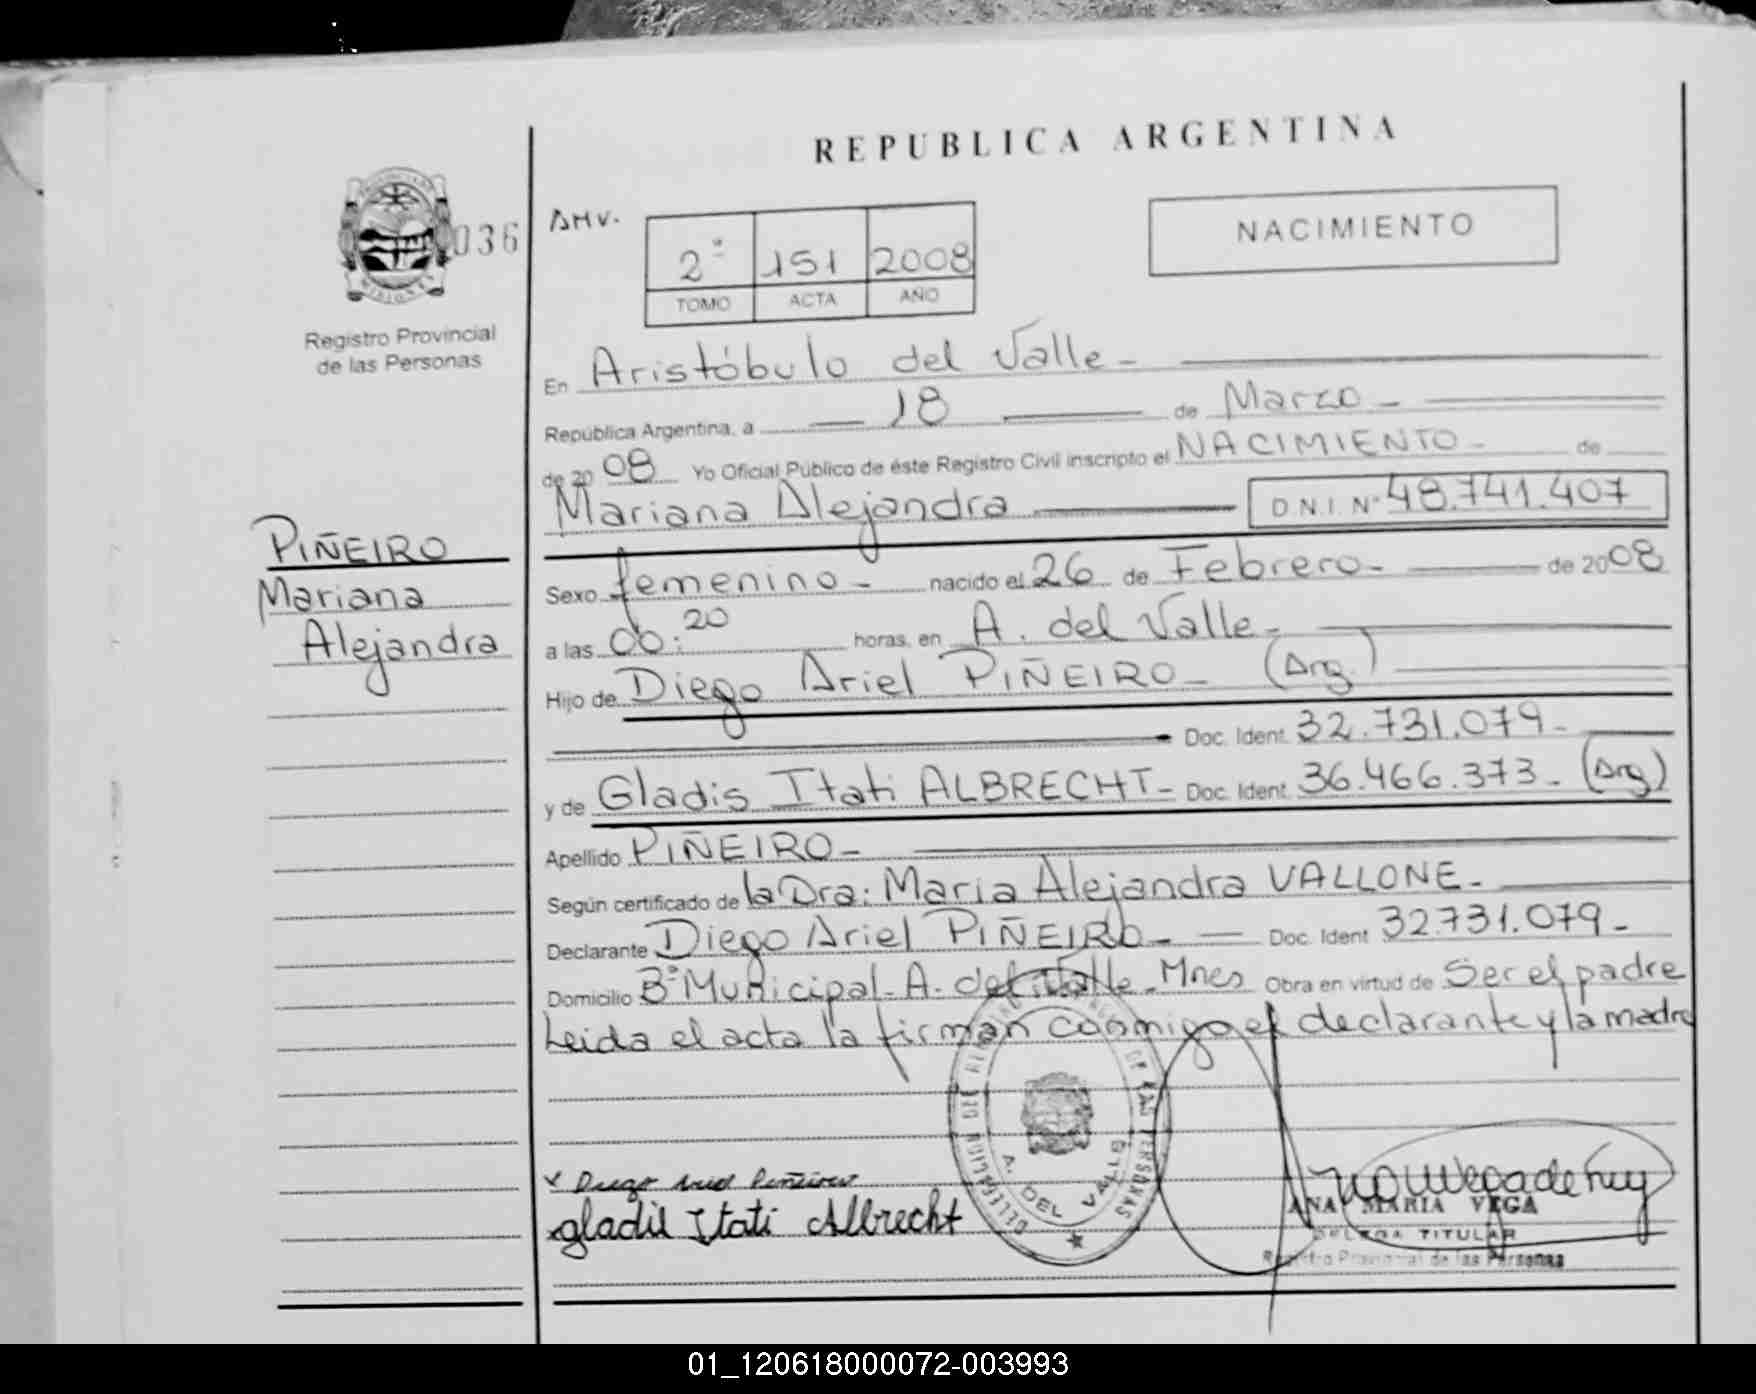 REPUBLICA ARGENTINA
036
AMV.
2º 151 2008
TOMO ACTA AÑO
NACIMIENTO
Registro Provincial
de las Personas
En Aristóbulo del Valle -
República Argentina, a 18 de Marzo -
de 2008 Yo Oficial Público de éste Registro Civil inscripto el NACIMIENTO - de
Mariana Alejandra D.N.I. Nº 48.741.407
PIÑEIRO
Mariana
Alejandra
Sexo femenino - nacido el 26 de Febrero - de 2008
a las 00:20 horas, en A. del Valle -
Hijo de Diego Ariel PIÑEIRO - (Arg.)
Doc. Ident. 32.731.079 -
y de Gladis Itati ALBRECHT - Doc. Ident. 36.466.373 - (Arg)
Apellido PIÑEIRO -
Según certificado de la Dra: Maria Alejandra VALLONE -
Declarante Diego Ariel PIÑEIRO - Doc. Ident 32.731.079 -
Domicilio Bº Municipal - A. del Valle - Mnes Obra en virtud de Ser el padre
Leida el acta la firman conmigo el declarante y la madre
DELEGACION DEL REGISTRO DE LAS PERSONAS
A. DEL VALLE
Diego Ariel Piñeiro
gladis Itati Albrecht
ANA MARIA VEGA
DELEGA TITULAR
Registro Provincial de las Personas
01_120618000072-003993